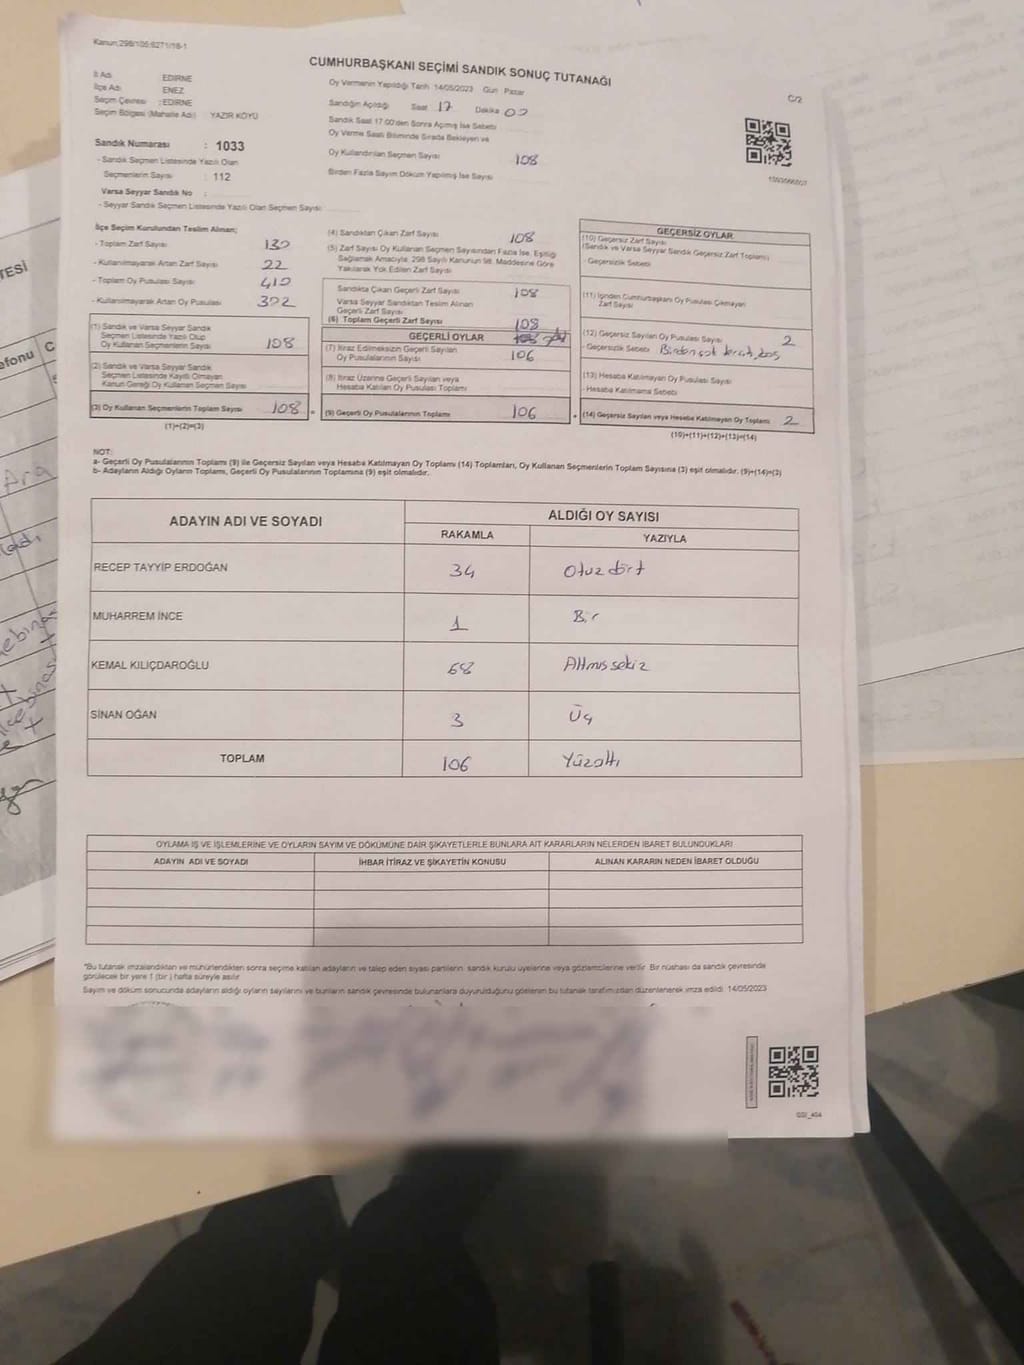 Kanun;298/105;6271/18-1
CUMHURBAŞKANI SEÇİMİ SANDIK SONUÇ TUTANAĞI
C/2
İl Adı EDİRNE
İlçe Adı ENEZ
Seçim Çevresi : EDİRNE
Seçim Bölgesi (Mahalle Adı) : YAZIR KÖYÜ
Sandık Numarası : 1033
- Sandık Seçmen Listesinde Yazılı Olan
Seçmenlerin Sayısı : 112
Varsa Seyyar Sandık No :
- Seyyar Sandık Seçmen Listesinde Yazılı Olan Seçmen Sayısı:
Oy Vermenin Yapıldığı Tarih 14/05/2023 Gün Pazar
Sandığın Açıldığı Saat 17 Dakika 02
Sandık Saat 17:00'den Sonra Açılmış İse Sebebi
Oy Verme Saati Bitiminde Sırada Bekleyen ve
Oy Kullandırılan Seçmen Sayısı 108
Birden Fazla Sayım Döküm Yapılmış İse Sayısı
İlçe Seçim Kurulundan Teslim Alınan;
- Toplam Zarf Sayısı 130
- Kullanılmayarak Artan Zarf Sayısı 22
- Toplam Oy Pusulası Sayısı 410
- Kullanılmayarak Artan Oy Pusulası 302
(1) Sandık ve Varsa Seyyar Sandık
Seçmen Listesinde Yazılı Olup
Oy Kullanan Seçmenlerin Sayısı 108
(2) Sandık ve Varsa Seyyar Sandık
Seçmen Listesinde Kayıtlı Olmayan
Kanun Gereği Oy Kullanan Seçmen Sayısı
(3) Oy Kullanan Seçmenlerin Toplam Sayısı 108 =
(1)+(2)=(3)
(4) Sandıktan Çıkan Zarf Sayısı 108
(5) Zarf Sayısı Oy Kullanan Seçmen Sayısından Fazla İse, Eşitliği
Sağlamak Amacıyla, 298 Sayılı Kanunun 98. Maddesine Göre
Yakılarak Yok Edilen Zarf Sayısı
Sandıkta Çıkan Geçerli Zarf Sayısı 108
Varsa Seyyar Sandıktan Teslim Alınan
Geçerli Zarf Sayısı
(6) Toplam Geçerli Zarf Sayısı 108
GEÇERLİ OYLAR
(7) İtiraz Edilmeksizin Geçerli Sayılan
Oy Pusulalarının Sayısı 106
(8) İtiraz Üzerine Geçerli Sayılan veya
Hesaba Katılan Oy Pusulası Toplamı
(9) Geçerli Oy Pusulalarının Toplamı 106 +
GEÇERSİZ OYLAR
(10) Geçersiz Zarf Sayısı
(Sandık ve Varsa Seyyar Sandık Geçersiz Zarf Toplamı)
- Geçersizlik Sebebi
(11) İçinden Cumhurbaşkanı Oy Pusulası Çıkmayan
Zarf Sayısı
(12) Geçersiz Sayılan Oy Pusulası Sayısı 2
- Geçersizlik Sebebi Birden çok
(13) Hesaba Katılmayan Oy Pusulası Sayısı
- Hesaba Katılmama Sebebi
(14) Geçersiz Sayılan veya Hesaba Katılmayan Oy Toplamı 2
(10)+(11)+(12)+(13)=(14)
NOT:
a- Geçerli Oy Pusulalarının Toplamı (9) ile Geçersiz Sayılan veya Hesaba Katılmayan Oy Toplamı (14) Toplamları, Oy Kullanan Seçmenlerin Toplam Sayısına (3) eşit olmalıdır. (9)+(14)=(3)
b- Adayların Aldığı Oyların Toplamı, Geçerli Oy Pusulalarının Toplamına (9) eşit olmalıdır.
ADAYIN ADI VE SOYADI ALDIĞI OY SAYISI
RAKAMLA YAZIYLA
RECEP TAYYİP ERDOĞAN 34 Otuz dört
MUHARREM İNCE 1 Bir
KEMAL KILIÇDAROĞLU 68 Altmış sekiz
SİNAN OĞAN 3 Üç
TOPLAM 106 Yüzaltı
OYLAMA İŞ VE İŞLEMLERİNE VE OYLARIN SAYIM VE DÖKÜMÜNE DAİR ŞİKAYETLERLE BUNLARA AİT KARARLARIN NELERDEN İBARET BULUNDUKLARI
ADAYIN ADI VE SOYADI İHBAR İTİRAZ VE ŞİKAYETİN KONUSU ALINAN KARARIN NEDEN İBARET OLDUĞU
*Bu tutanak imzalandıktan ve mühürlendikten sonra seçime katılan adayların ve talep eden siyasi partilerin sandık kurulu üyelerine veya gözlemcilerine verilir. Bir nüshası da sandık çevresinde
görülecek bir yere 1 (bir) hafta süreyle asılır.
Sayım ve döküm sonucunda adayların aldığı oyların sayılarını ve bunların sandık çevresinde bulunanlara duyurulduğunu gösteren bu tutanak tarafımızdan düzenlenerek imza edildi. 14/05/2023